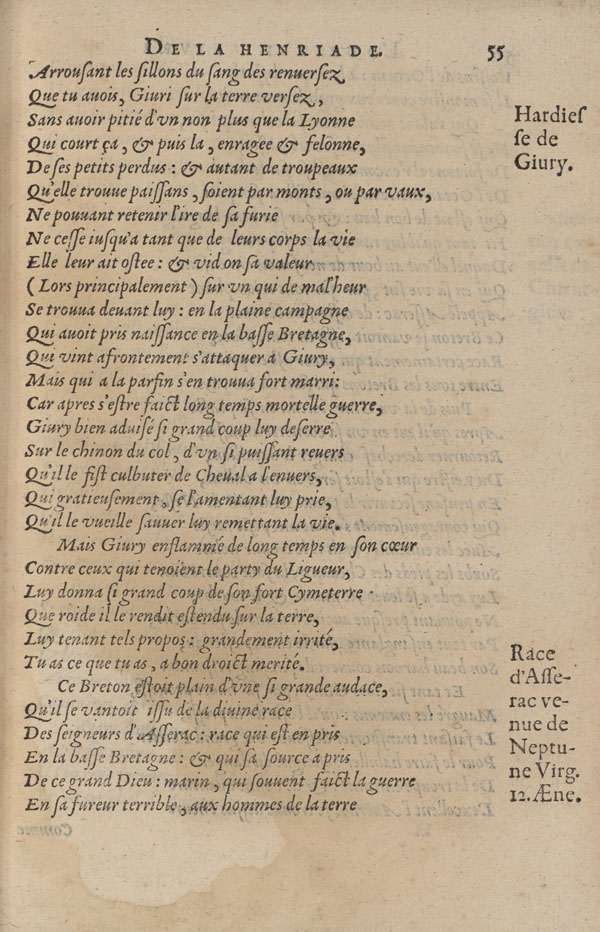 DE LA HENRIADE. 55
Arrousant les sillons du sang des renuersez
Que tu auois, Giuri sur la terre versez,
Sans auoir pitié d'vn non plus que la Lyonne
Qui court ça, & puis la, enragee & felonne,
De ses petits perdus: & autant de troupeaux
Qu'elle trouue paissans, soient par monts, ou par vaux,
Ne pouuant retenir l'ire de sa furie
Ne cesse iusqu'a tant que de leurs corps la vie
Elle leur ait ostee: & vid on sa valeur
(Lors principalement) sur vn qui de mal'heur
Se trouua deuant luy: en la plaine campagne
Qui auoit pris naissance en la basse Bretagne,
Qui vint afrontement s'attaquer à Giury,
Mais qui a la parfin s'en trouua fort marri:
Car apres s'estre faict long temps mortelle guerre,
Giury bien aduisé si grand coup luy deserre
Sur le chinon du col, d'vn si puissant reuers
Qu'il le fist culbuter de Cheual a l'enuers,
Qui gratieusement, se l'amentant luy prie,
Qu'il le vueille sauuer luy remettant la vie.
Mais Giury enflammé de long temps en son cœur
Contre ceux qui tenoient le party du Ligueur,
Luy donna si grand coup de son fort Cymeterre
Que roide il le rendit estendu sur la terre,
Luy tenant tels propos: grandement irrité,
Tu as ce que tu as, a bon droict merité.
Ce Breton estoit plain d'vne si grande audace,
Qu'il se vantoit issu de la diuine race
Des seigneurs d'Asserac: race qui est en pris
En la basse Bretagne: & qui sa source a pris
De ce grand Dieu: marin, qui souuent faict la guerre
En sa fureur terrible, aux hommes de la terre
Hardies
se de
Giury.
Race
d'Asse-
rac ve-
nue de
Neptu-
ne Virg.
12. Æne.